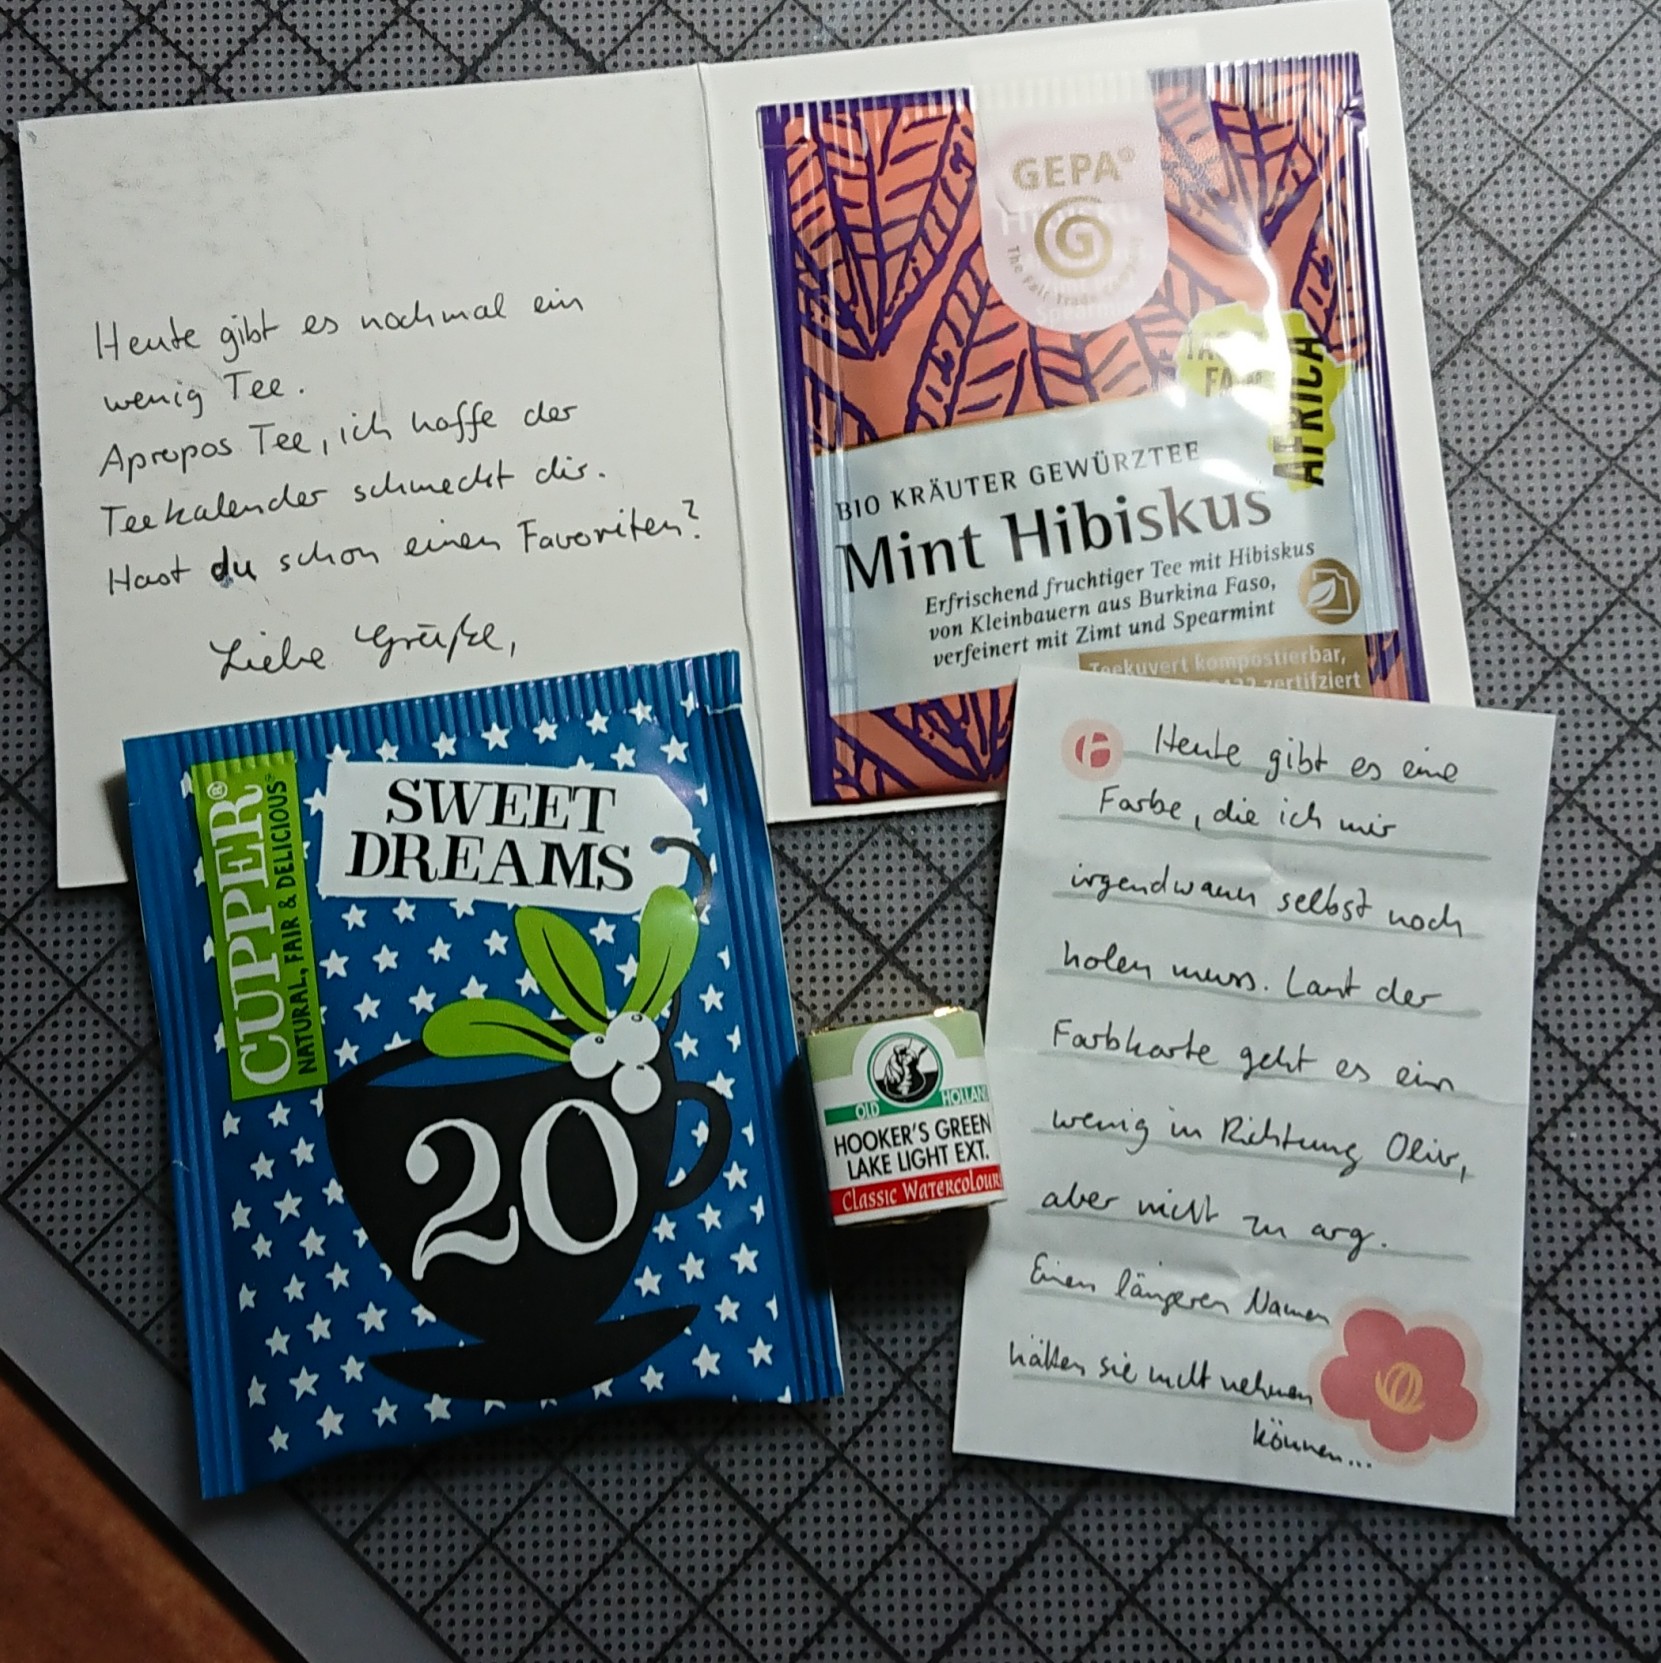 Heute gibt es nochmal ein
wenig Tee.
Apropos Tee, ich hoffe der
Teekalender schmeckt dir.
Hast du schon einen Favoriten?
Liebe Grüße,
GEPA®
G
The Fair Trade Company
FAIR
AFRICA
BIO KRÄUTER GEWÜRZTEE
Mint Hibiskus
Erfrischend fruchtiger Tee mit Hibiskus
von Kleinbauern aus Burkina Faso,
verfeinert mit Zimt und Spearmint
Teekuvert kompostierbar,
zertifziert
CUPPER®
NATURAL, FAIR & DELICIOUS®
SWEET
DREAMS
20
OLD HOLLAND
HOOKER'S GREEN
LAKE LIGHT EXT.
CLASSIC WATERCOLOUR
Heute gibt es eine
Farbe, die ich mir
irgendwann selbst noch
holen muss. Laut der
Farbkarte geht es ein
wenig in Richtung Oliv,
aber nicht zu arg.
Einen längeren Namen
hätten sie nicht nehmen
können...